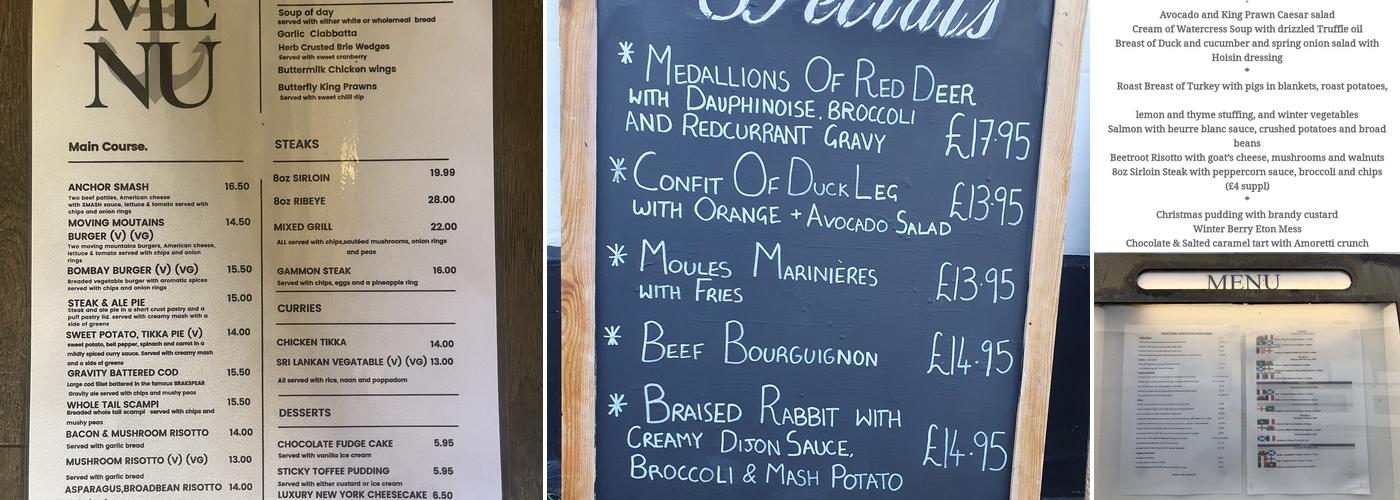 ME
NU
Main Course.
ANCHOR SMASH 16.50
Two beef patties, American cheese
with SMASH sauce, lettuce & tomato served with
chips and onion rings
MOVING MOUTAINS 14.50
BURGER (V) (VG)
Two moving mountains burgers, American cheese,
lettuce & tomato served with chips and onion
rings
BOMBAY BURGER (V) (VG) 15.50
Breaded vegetable burger with aromatic spices
served with chips and onion rings
STEAK & ALE PIE 15.00
Steak and ale pie in a short crust pastry and a
puff pastry lid. served with creamy mash with a
side of greens
SWEET POTATO, TIKKA PIE (V) 14.00
sweet potato, bell pepper, spinach and carrot in a
mildly spiced curry sauce. Served with creamy mash
and a side of greens
GRAVITY BATTERED COD 15.50
Large cod fillet battered in the famous BRAKSPEAR
Gravity ale served with chips and mushy peas
WHOLE TAIL SCAMPI 15.50
Breaded whole tail scampi served with chips and
mushy peas
BACON & MUSHROOM RISOTTO 14.00
Served with garlic bread
MUSHROOM RISOTTO (V) (VG) 13.00
Served with garlic bread
ASPARAGUS,BROADBEAN RISOTTO 14.00
Soup of day
served with either white or wholemeal bread
Garlic Ciabbatta
Herb Crusted Brie Wedges
Served with sweet cranberry
Buttermilk Chicken wings
Butterfly King Prawns
Served with sweet chilli dip
STEAKS
8oz SIRLOIN 19.99
8oz RIBEYE 28.00
MIXED GRILL 22.00
ALL served with chips,sautéed mushrooms, onion rings
and peas
GAMMON STEAK 16.00
Served with chips, eggs and a pineapple ring
CURRIES
CHICKEN TIKKA 14.00
SRI LANKAN VEGATABLE (V) (VG) 13.00
All served with rice, naan and poppadom
DESSERTS
CHOCOLATE FUDGE CAKE 5.95
Served with vanilla ice cream
STICKY TOFFEE PUDDING 5.95
Served with either custard or ice cream
LUXURY NEW YORK CHEESECAKE 6.50
Specials
* MEDALLIONS OF RED DEER
WITH DAUPHINOISE. BROCCOLI
AND REDCURRANT GRAVY £17.95
* CONFIT OF DUCK LEG
WITH ORANGE + AVOCADO SALAD £13.95
* MOULES MARINIÈRES
WITH FRIES £13.95
* BEEF BOURGUIGNON £14.95
* BRAISED RABBIT WITH
CREAMY DIJON SAUCE,
BROCCOLI & MASH POTATO £14.95
Avocado and King Prawn Caesar salad
Cream of Watercress Soup with drizzled Truffle oil
Breast of Duck and cucumber and spring onion salad with
Hoisin dressing
*
Roast Breast of Turkey with pigs in blankets, roast potatoes,
lemon and thyme stuffing, and winter vegetables
Salmon with beurre blanc sauce, crushed potatoes and broad
beans
Beetroot Risotto with goat's cheese, mushrooms and walnuts
8oz Sirloin Steak with peppercorn sauce, broccoli and chips
(£4 suppl)
*
Christmas pudding with brandy custard
Winter Berry Eton Mess
Chocolate & Salted caramel tart with Amoretti crunch
MENU